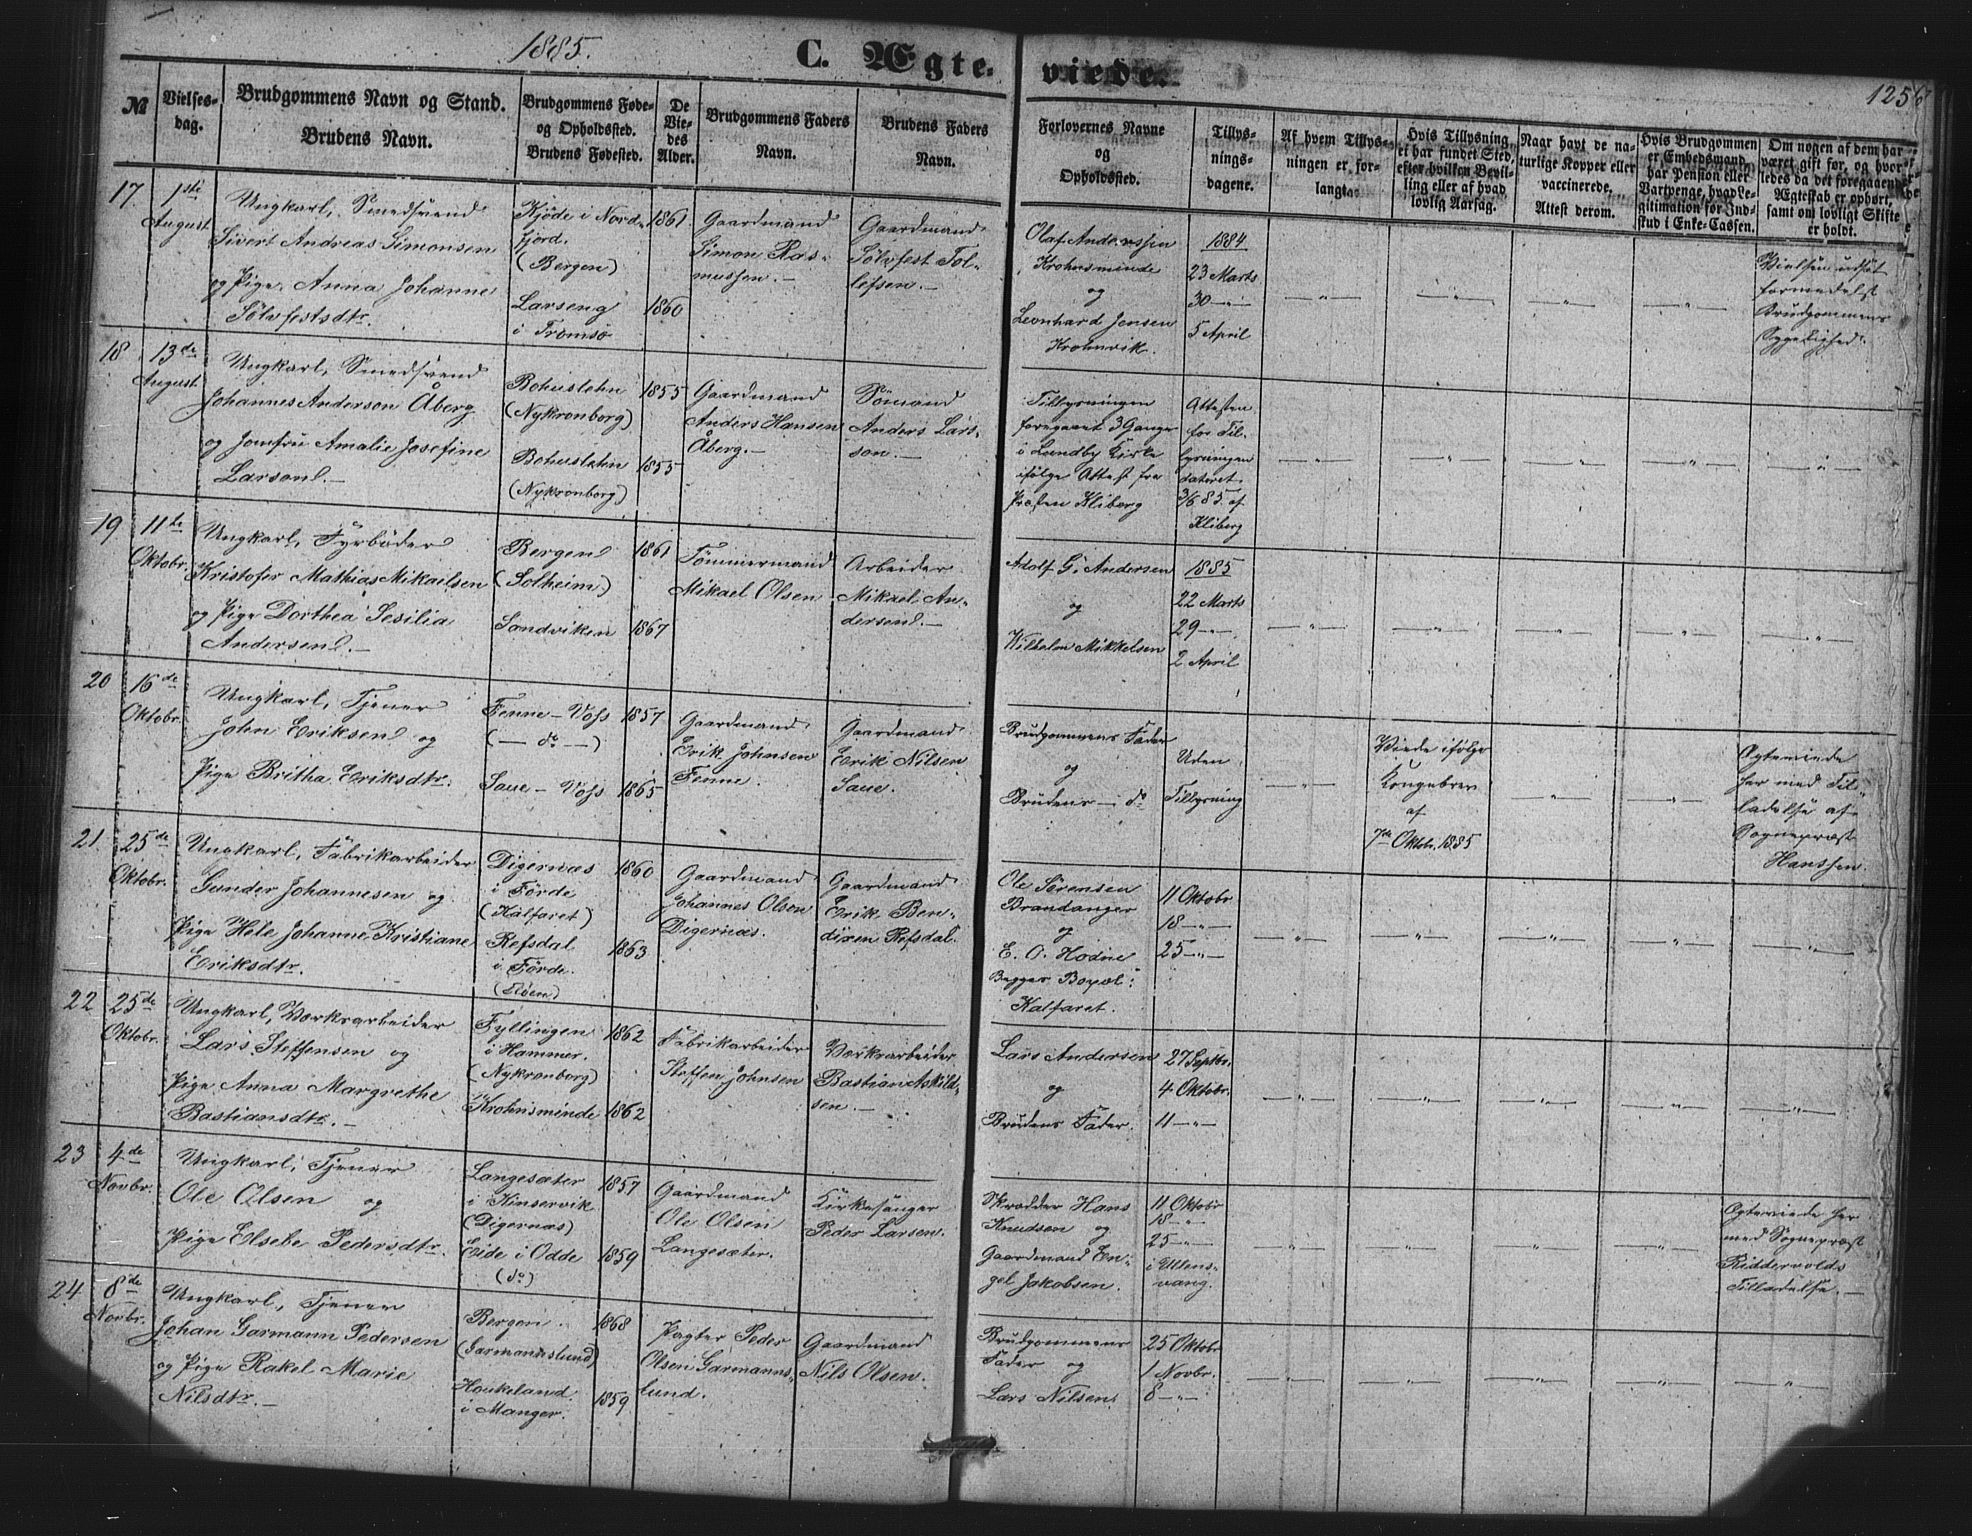 1885.
C. Ægte-
viede.
125
№
Vielses-
dag.
Brudgommens Navn og Stand.
Brudens Navn.
Brudgommens Føde-
og Opholdssted.
Brudens Fødested.
De
Vie-
des
Alder.
Brudgommens Faders
Navn.
Brudens Faders
Navn.
Forlovernes Navne
og
Opholdssted.
Tillys-
nings-
dagene.
Af hvem Tillys-
ningen er for-
langt.
Hvis Tillysning
ei har fundet Sted,
efter hvilken Bevil-
ling eller af hvad
lovlig Aarsag.
Naar havt de na-
turlige Kopper eller
vaccinerede.
Attest derom.
Hvis Brudgommen
er Embedsmand,
har Pension eller
Vartpenge, hvad Le-
gitimation for Ind-
skud i Enke-Cassen.
Om nogen af dem har
været gift før, og hvor-
ledes da det foregaaende
Ægteskab er ophørt,
samt om lovligt Skifte
er holdt.
17
1ste
August
Ungkarl, Smedsvend
Sivert Andreas Simonsen
og Pige Anna Johanne
Sølvfestsdtr.
Kjøde i Nord-
fjord.
(Bergen)
Larseng
i Tromsø
1861
1860
Gaardmand
Simon Ras-
mussen.
Gaardmand
Sølvfest Tol-
lefsen.
Olaf Anderssen
Krohnsminde
og
Leonhard Jensen
Krohnvik.
1884
23 Marts
30 —„—
5 April
Vielsen udsat
formedelst
Brudgommens
Sygelighed.
18
13de
August
Ungkarl, Smedsvend
Johannes Anderson Åberg
og Jomfru Amalie Josefine
Larson.
Bohuslehn
(Nykronborg)
Bohuslehn
(Nykronborg)
1855
1855
Gaardmand
Anders Hansen
Åberg.
Sømand
Anders Lars-
son.
Tillysningen
foregaaet 3 Gange
i Lundby Kirke
ifølge Attest fra
Kliberg
Attesten
for Til-
lysningen
dateret
3/6 85 af
Kliberg
19
11te
Oktobr.
Ungkarl, Fyrbøder
Kristofer Mathias Mikaelsen
og Pige Dorthea Sesilia
Andersen.
Bergen
(Solheim)
Sandviken
1861
1867
Tømmermand
Mikael Olsen
Arbeider
Mikael An-
dersen.
Adolf G. Andersen
og
Wilhelm Mikkelsen
1885
22 Marts
29 —„—
2 April
20
16de
Oktobr.
Ungkarl, Tjener
John Eriksen og
Pige Britha Eriksdtr.
Fenne - Voss
(— do —)
Saue - Voss
1857
1865
Gaardmand
Erik Johnsen
Fenne.
Gaardmand
Erik Nilsen
Saue.
Brudgommens Fader
og
Brudens — do
Uden
Tillysning
Viede ifølge
Kongebrev
af
7de Oktobr. 1885
Ægteviede
her med Til-
ladelse af
Sognepræst
Hanssen.
21.
25de
Oktobr.
Ungkarl, Fabrikarbeider
Gunder Johannesen og
Pige Hele Johanne Kristiane
Eriksdtr.
Digernæs
i Førde
(Kalfaret)
Refsdal
i Førde.
(Fløen)
1860
1863
Gaardmand
Johannes Olsen
Digernæs.
Gaardmand
Erik Ben-
dixen Refsdal.
Ole Sørensen
Brandanger
og
E. O. Hodne
Begges Bopæl:
Kalfaret.
11 Oktobr
18 —„—
25 —„—
22
25de
Oktobr.
Ungkarl, Værksarbeider
Lars Steffensen og
Pige Anna Margrethe
Bastiansdtr.
Fyllingen
i Hammer.
(Nykronborg)
Krohnsminde
1862
1862
Fabrikarbeider
Steffen Johnsen
Værksarbeider
Bastian Askild-
sen.
Lars Andersen
og
Brudens Fader.
27 Septbr.
4 Oktobr.
11 —„—
23
4de
Novbr.
Ungkarl, Tjener
Ole Olsen og
Pige Elsebe Pedersdtr.
Langesæter
i Kinservik
(Digernæs)
Eide i Odde
(do)
1857
1859
Gaardmand
Ole Olsen
Langesæter.
Kirkesanger
Peder Larsen.
Skrædder Hans
Knudsen og
Gaardmand En-
gel Jakobsen.
11 Oktobr
18 —„—
25 —„—
i Ullens-
vang.
Ægteviede her
med Sognepræst
Riddervolds
Tilladelse.
24
8de
Novbr.
Ungkarl, Tjener
Johan Garmann Pedersen
og Pige Rakel Marie
Nilsdtr.
Bergen.
(Garmannslund)
Haukeland
i Manger.
1868
1859
Pagter Peder
Olsen Garmanns-
lund.
Gaardmand
Nils Olsen.
Brudgommens
Fader og
Lars Nilsen
25 Oktobr
1 Novbr.
8 —„—